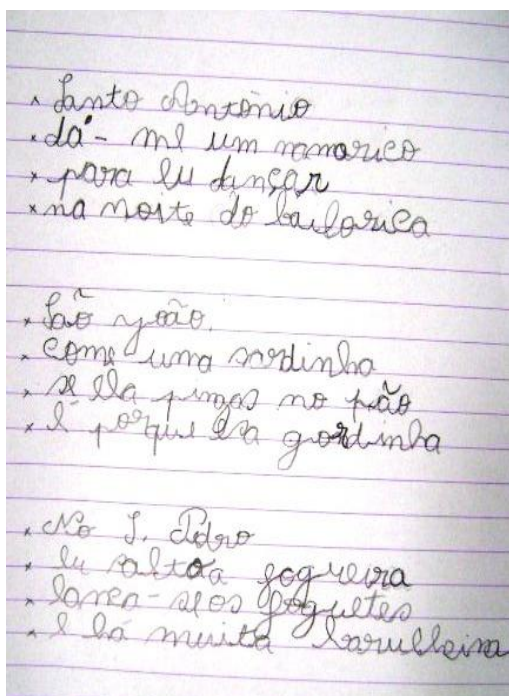 x Santo António
x dá-me um namorico
x para eu dançar
x na noite do bailorico

x São João.
x come uma sardinha
x se ela pingas no pão
x é porque era gordinha

x No S. Pedro
x eu salto a fogueira
x lança-se os foguetes
x e há muita barulheira